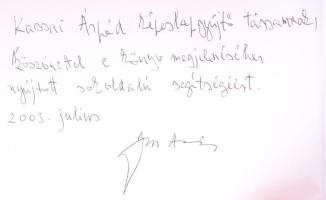 Kassai Árpád képeslapgyűjtő társamnak,
Köszönettel e könyv megjelenéséhez
nyújtott sokoldalú segítségéért.
2003. július